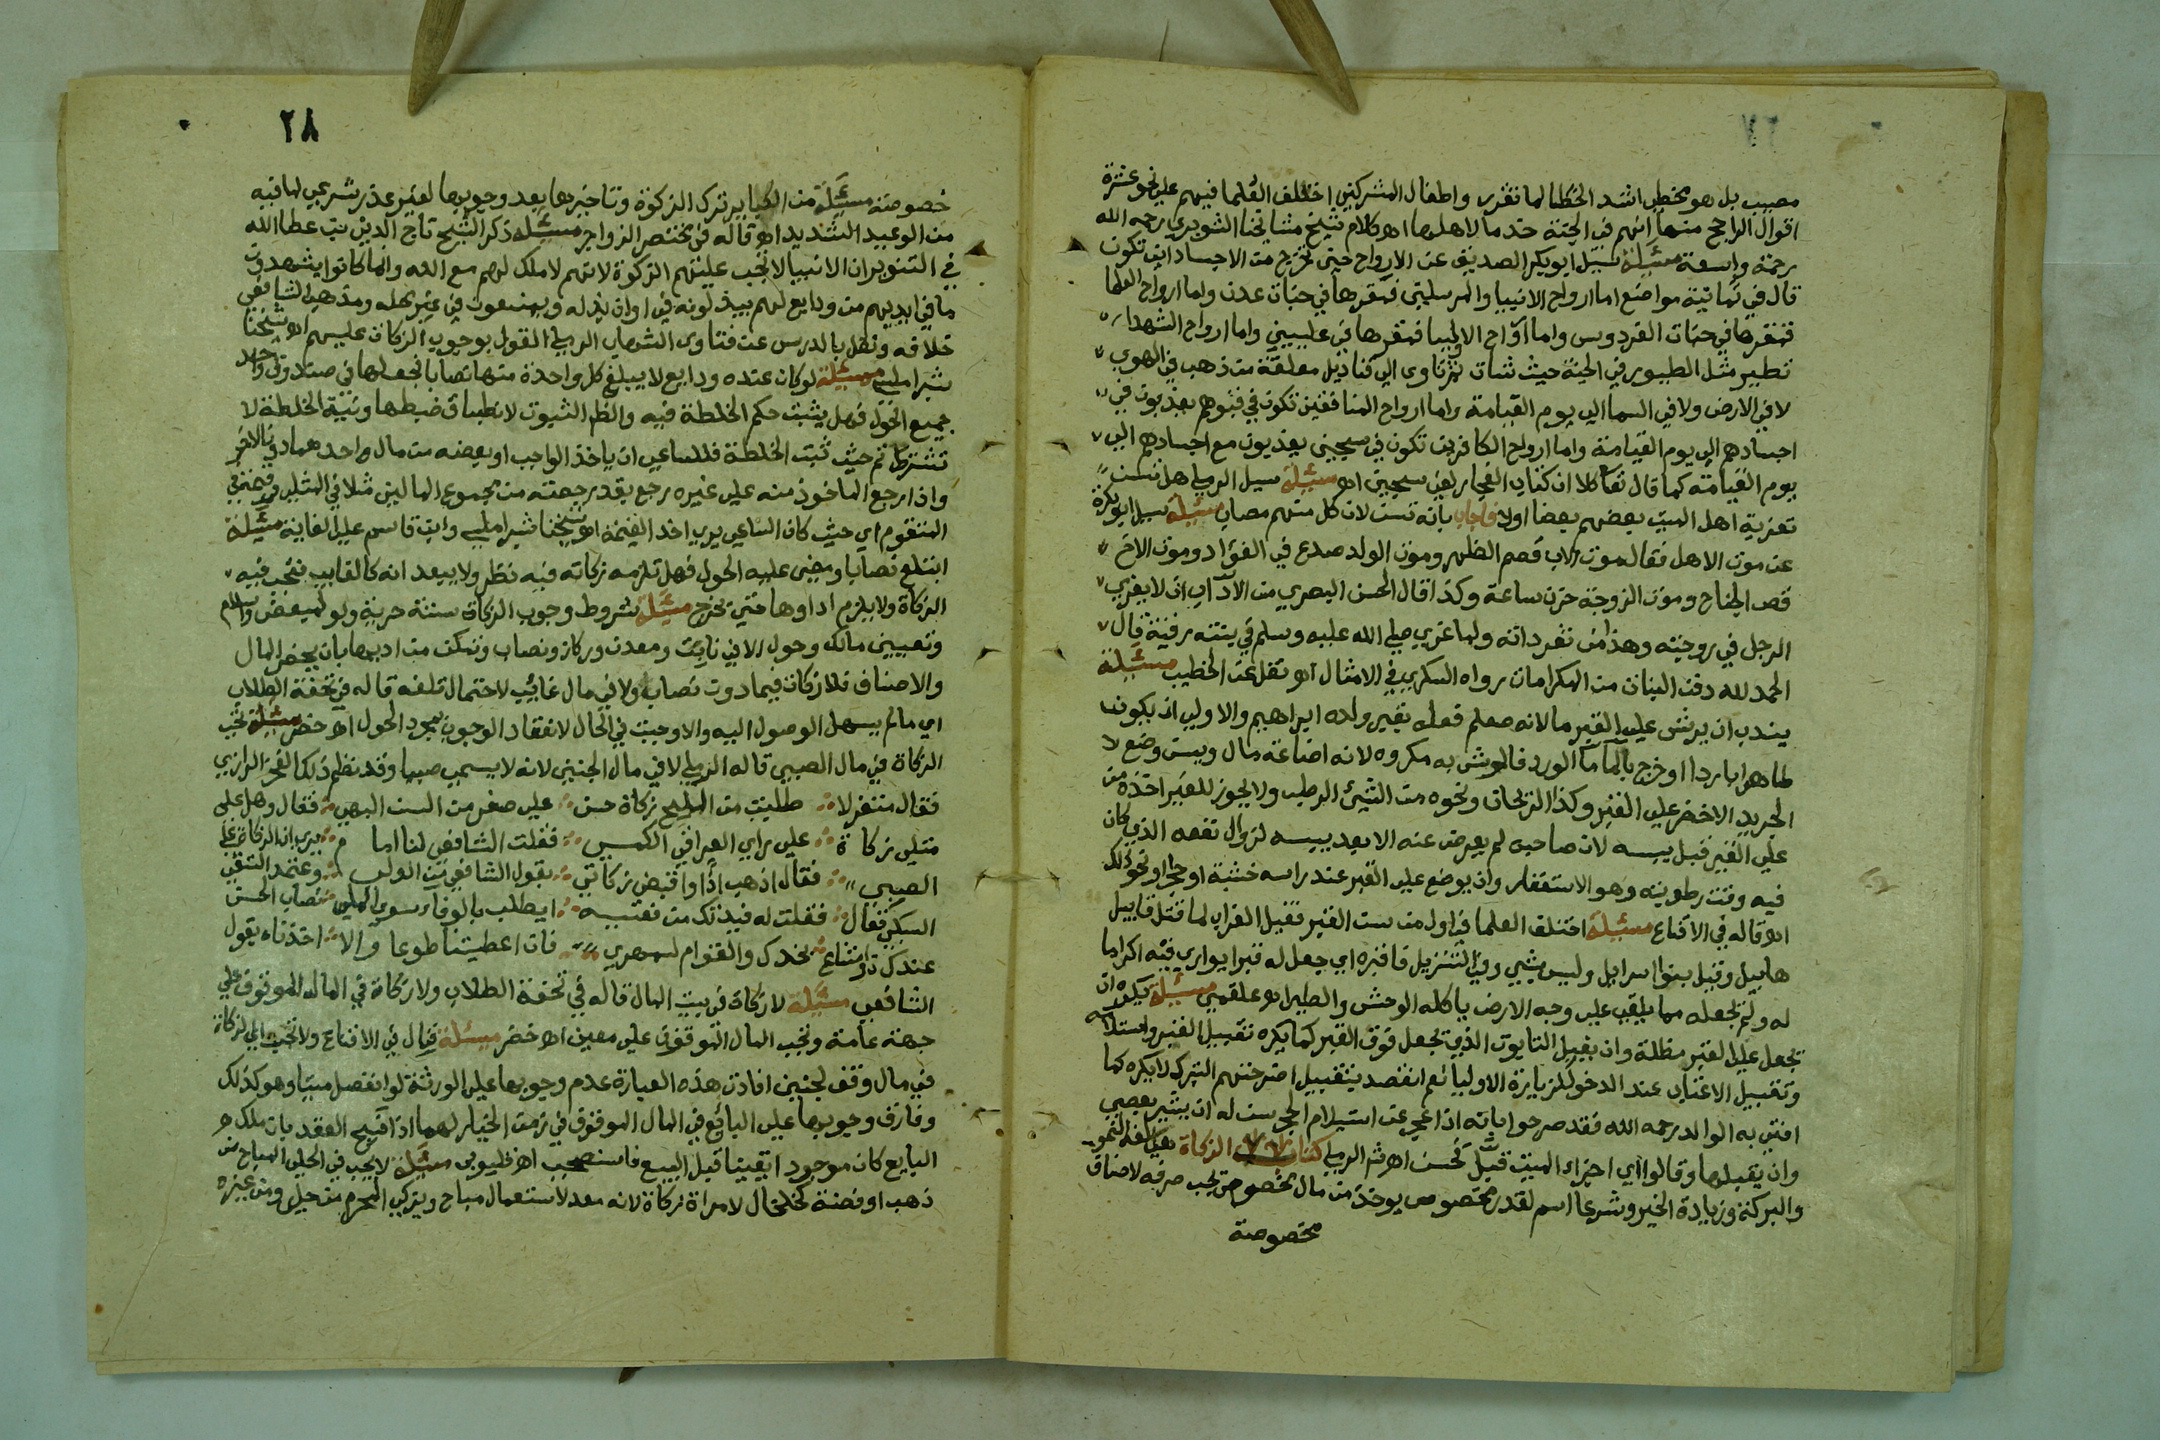 مصيب بل هو مخطي اشد الخطا لما تقرر واطفال المشركين اختلف العلما فيهم علي نحو عشرة
اقوال الراجح منها انهم في الجنة خدما لاهلها اهـ كلام شيخ مشايخنا الشوبري رحمه الله
رحمة واسعة مسئلة سيل ابوبكر الصديق عن الارواح حين تخرج من الاجساد اين تكون
قال في ثمانية مواضع اما ارواح الانبيا والمرسلين فمقرها في جنات عدن واما ارواح العلما
فمقرها في جنات الفردوس واما ارواح الاوليا فمقرها في عليين واما ارواح الشهدا
تطير مثل الطيور في الجنة حيث شات ثم تاوي الي قناديل معلقة من ذهب في الهوي
لا في الارض ولا في السما الي يوم القيامة واما ارواح المنافقين تكون في قبورهم يعذبون في
اجسادهم الي يوم القيامة واما ارواح الكافرين تكون في سجين يعذبون مع اجسادهم الي
يوم القيامة كما قال تعا كلا ان كتاب الفجار لفي سجين اهـ مسئلة سيل الرملي هل تسن
تعزية اهل الميت بعضهم بعضا اولا فاجاب بانه تسن لان كل منهم مصاب مسئلة سيل ابوبكرة
عن موت الاهل فقال موت الاب قصم الظهر وموت الولد صدع في الفواد وموت الاخ
قص الجناح وموت الزوجة حزن ساعة وكذا قال الحسن البصري من الآداب ان لا يعزي
الرجل في زوجته وهذا من تفرداته ولما عزي صلي الله عليه وسلم في بنته رقية قال
الحمد لله دفن البنات من المكرمات رواه السكري في الامثال اهـ نقل عن الخطيب مسئلة
يندب ان يرش علي القبر ما لانه صعلم فعله بقبر ولده ابراهيم والاولي ان يكون
طاهرا باردا وخرج بالما ما الورد فالرش به مكروه لانه اضاعة مال ويسن وضع
الجريد الاخضر علي القبر وكذا الريحان ونحوه من الشيئ الرطب ولا يجوز للغير اخذه من
علي القبر قبل يبسه لان صاحبه لم يعرض عنه الا بعد يبسه لزوال نفعه الذي كان
فيه وقت رطوبته وهو الاستغفار وان يوضع علي القبر عند راسه خشبة او حجر او نحو ذلك
اهـ قاله في الاقناع مسئلة اختلف العلما في اول من سن القبر فقيل الغراب لما قتل قابيل
هابيل وقيل بنوا اسرايل وليس بشي وفي التنزيل فاقبره اي جعل له قبرا يواري فيه اكراما
له ولم يجعله مما يلقي علي وجه الارض ياكله الوحش والطير اهـ علقمي مسئلة يكره ان
يجعل علي القبر مظلة وان يقبل التابوت الذي يجعل فوق القبر كما يكره تقبيل القبر واستلامه
وتقبيل الاعتاب عند الدخول لزيارة الاوليا نعم ان قصد بتقبيل اضرحتهم التبرك لا يكره كما
افتي به الوالد رحمه الله فقد صرحوا بانه اذا عجز عن استيلام الحجر سن له ان يشير بعصي
وان يقبلها وقالوا اي اجزاء البيت قبل فحسن اهـ شر الرملي كتاب الزكاة هي لغة النمو
والبركة وزيادة الخير وشرعا اسم لقدر مخصوص يوخذ من مال مخصوص يجب صرفه لاصناف
مخصوصة
٢٨
خصوصة مسئلة من الكباير ترك الزكوة وتاخيرها بعد وجوبها لغير عذر شرعي لما فيه
من الوعيد الشديد اهـ قاله في مختصر الزواجر مسئلة ذكر الشيخ تاج الدين بن عطا الله
في التنوير ان الانبيا لا تجب عليهم الزكوة لانهم لا ملك لهم مع الله وانما كانوا يشهدون
ما في ايديهم من ودايع لهم يبذلونه في اوان بذله ويمنعون في غير محله ومذهب الشافعي
خلافه ونقل بالدرس عن فتاوي الشهاب الرملي القول بوجوب الزكاة عليهم اهـ شيخنا
شبراملسي مسئلة لو كان عنده ودايع لا يبلغ كل واحدة منها نصابا فجعلها في صندوق واحد
جميع الحول فهل يثبت حكم الخلطة فيه والظم الثبوت لانطباق ضبطها ونية الخلطة لا
تشترط ثم حيث ثبت الخلطة فللساعي ان ياخذ الواجب او بعضه من مال واحدهما دون الاخر
واذا رجع الماخوذ منه علي غيره رجع بقدر حصته من مجموع المالين مثلا في المثلي وقيمته في
المتقوم اي حيث كان الساعي يري اخذ القيمة اهـ شيخنا شبراملسي وابن قاسم علي الغاية مسئلة
ابتلع نصابا ومضي عليه الحول فهل تلزمه زكاته فيه نظر ولا يبعد انه كالغايب فتجب فيه
الزكاة ولا يلزم اداوها حتي يخرج مسئلة شروط وجوب الزكاة ستة حرية ولو لمبعض واسلام
وتعيين مالك وحول الا في نابت ومعدن وركاز ونصاب وتمكن من ادايها بان يحضر المال
والاصناف فلا زكاة فيما دون نصاب ولا في مال غائب لاحتمال تلفه قاله في تحفة الطلاب
اي ما لم يسهل الوصول اليه والا وجبت في الحال لانعقاد الوجوب بمجرد الحول اهـ خضر مسئلة تجب
الزكاة في مال الصبي قاله الرملي لا في مال الجنين لانه لا يسمي صبيا وقد نظم ذلك الفخر الرازي
فقال متغزلا طلبت من المليح زكاة حسن علي صغر من السن البهي فقال وهل علي
مثلي زكاة علي راي العراقي الكمسي فقلت الشافعي لنا اما م يري ان الزكاة علي
الصبي فقال اذهب اذا واقبض زكاتي بقول الشافعي من الولي وعتمد التقي
السبكي فقال فقلت له فديتك من فقيه ايطلب بالوفاء سوي الملي نصاب الحسن
عندك ذو امتناع بخدك والقوام السمهري فان اعطيتنا طوعا والا اخذناه بقول
الشافعي مسئلة لا زكاة في بيت المال قاله في تحفة الطلاب ولا زكاة في المال الموقوف علي
جهة عامة وتجب المال الموقوف علي معين اهـ خضر مسئلة قال في الاقناع ولا تجب اي الزكاة
في مال وقف لجنين افادت هذه العبارة عدم وجوبها علي الورثة لو انفصل ميتا وهو كذلك
وفارق وجوبها علي البائع في المال الموقوف في زمن الخيار لهما اذا فسخ العقد بان ملك
البايع كان موجود ايقينا قبل البيع فاستصحب اهـ قليوبي مسئلة لا يجب في الحلي المباح من
ذهب او فضة كخلخال لامراة زكاة لانه معد لاستعمال مباح ويزكي المحرم من حلي ومن غيره